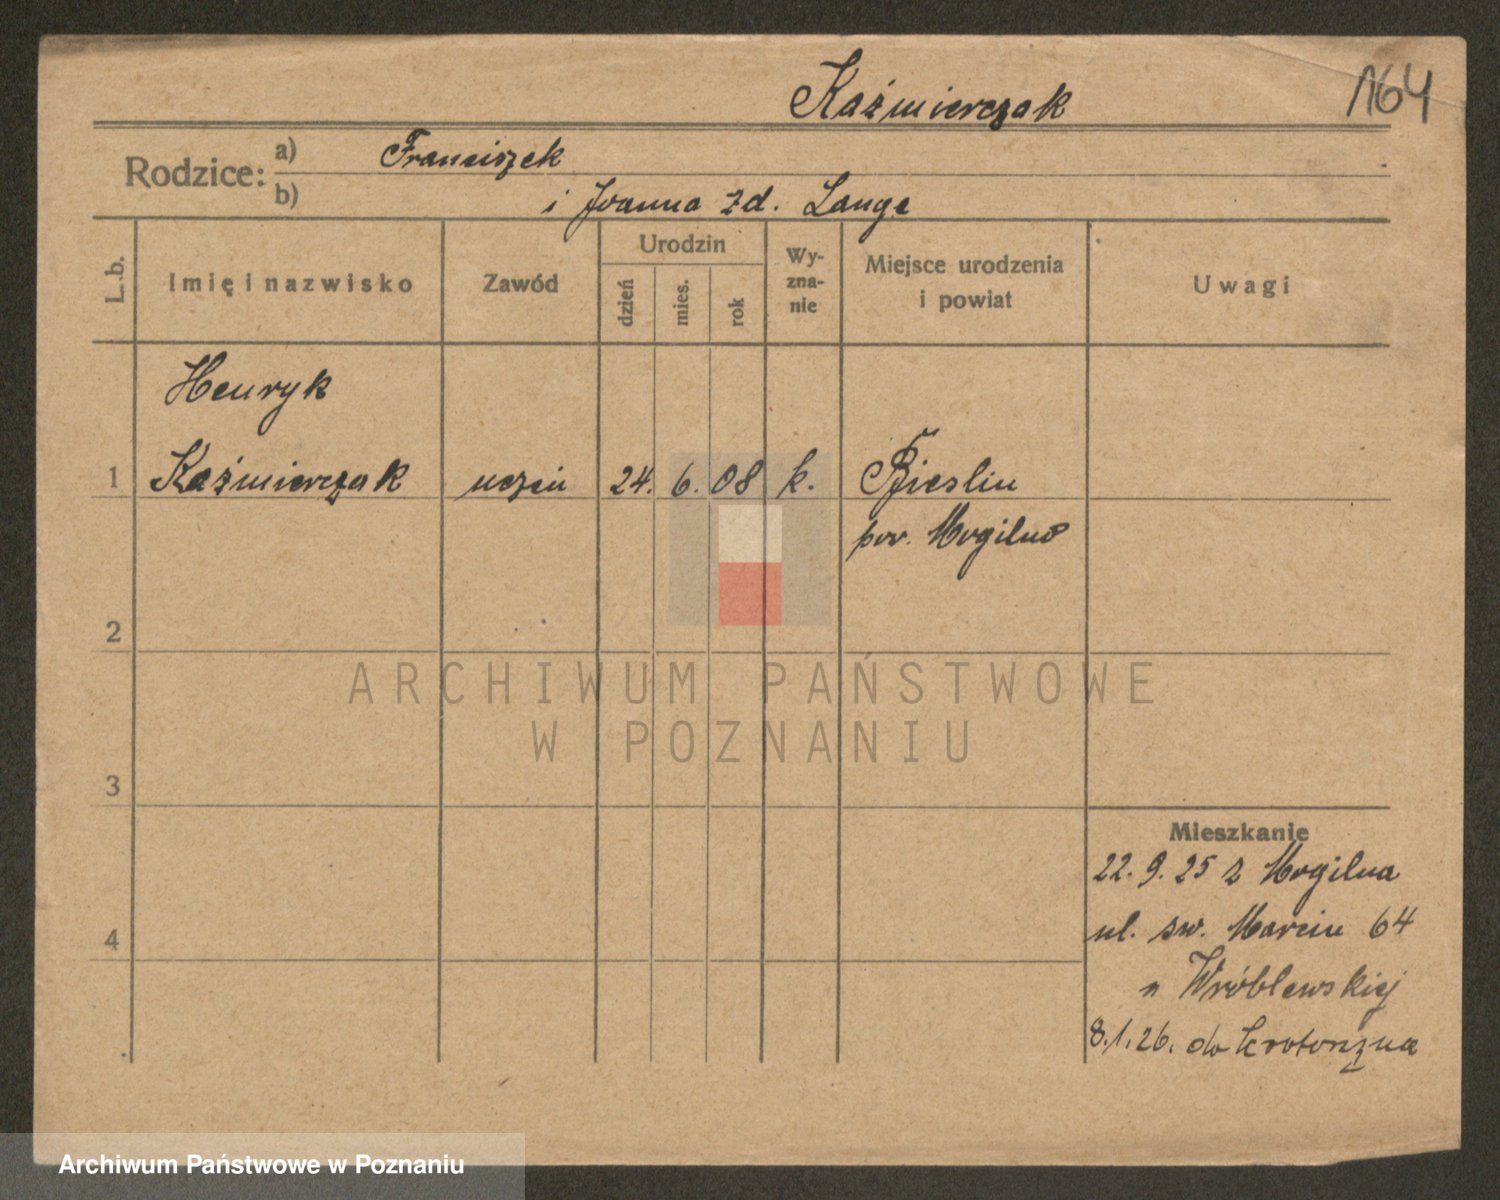 Kaźmierczak
164
Rodzice: a) Franciszek
b) i Joanna zd. Lange
L.b.
Imię i nazwisko
Zawód
Urodzin
dzień
mies.
rok
Wy-
zna-
nie
Miejsce urodzenia
i powiat
Uwagi
Henryk
1 Kaźmierczak uczeń 24. 6. 08 k. Bieslin
pow. Mogilno
2
3
4
Mieszkanie
22. 9. 25 z Mogilna
ul. św. Marcin 64
u Wróblewskiej
8.1.26. do Krotoszyna
ARCHIWUM PAŃSTWOWE
W POZNANIU
Archiwum Państwowe w Poznaniu